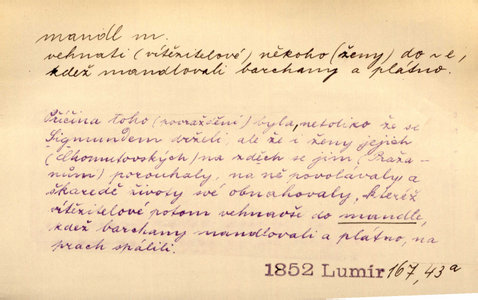 mandl m.
vehnati (vítězitelové) někoho (ženy) do ~e,
kdež mandlovali barchany a plátno.
Příčina toho (povraždění) byla, netoliko že se
Sigmundem drželi, ale že i ženy jejich
(Chomutovských) na zdech se jim (Praža-
nům) porouhaly, na ně povolávaly a
škaredě životy své obnahovaly, kteréž
vítězitelové potom vehnavše do mandle,
kdež barchany mandlovali a plátno, na
prach spálili.
1852 Lumír 167, 43a